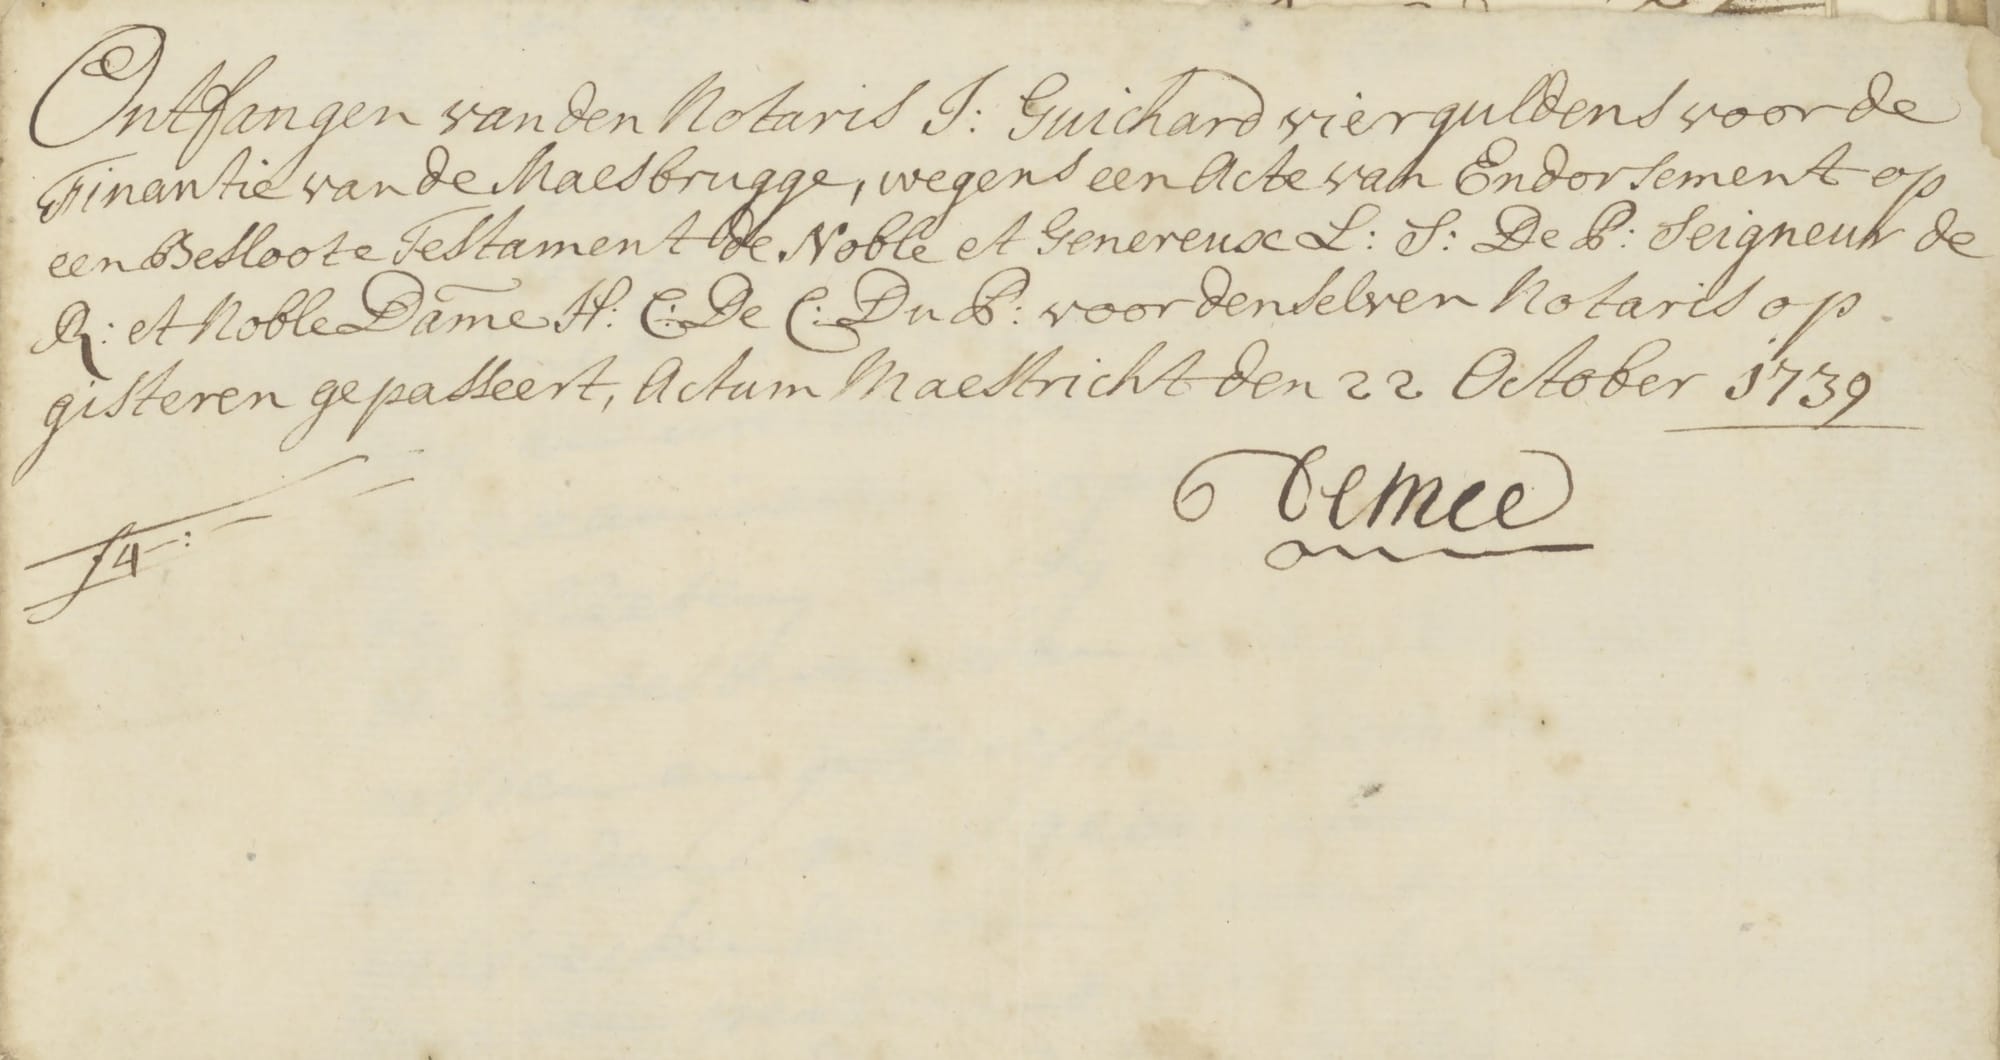 Ontfangen van den Notaris J: Guichard vier guldens voor de
Finantie van de Maesbrugge, wegens een Acte van Endorsement op
een Besloote Testament de Noble et Genereux L: S: De P: Seigneur de
R: et Noble Dame H: C: De C: Du P: voor denselven Notaris op
gisteren gepasseert, Actum Maestricht den 22 October 1739
f 4-: